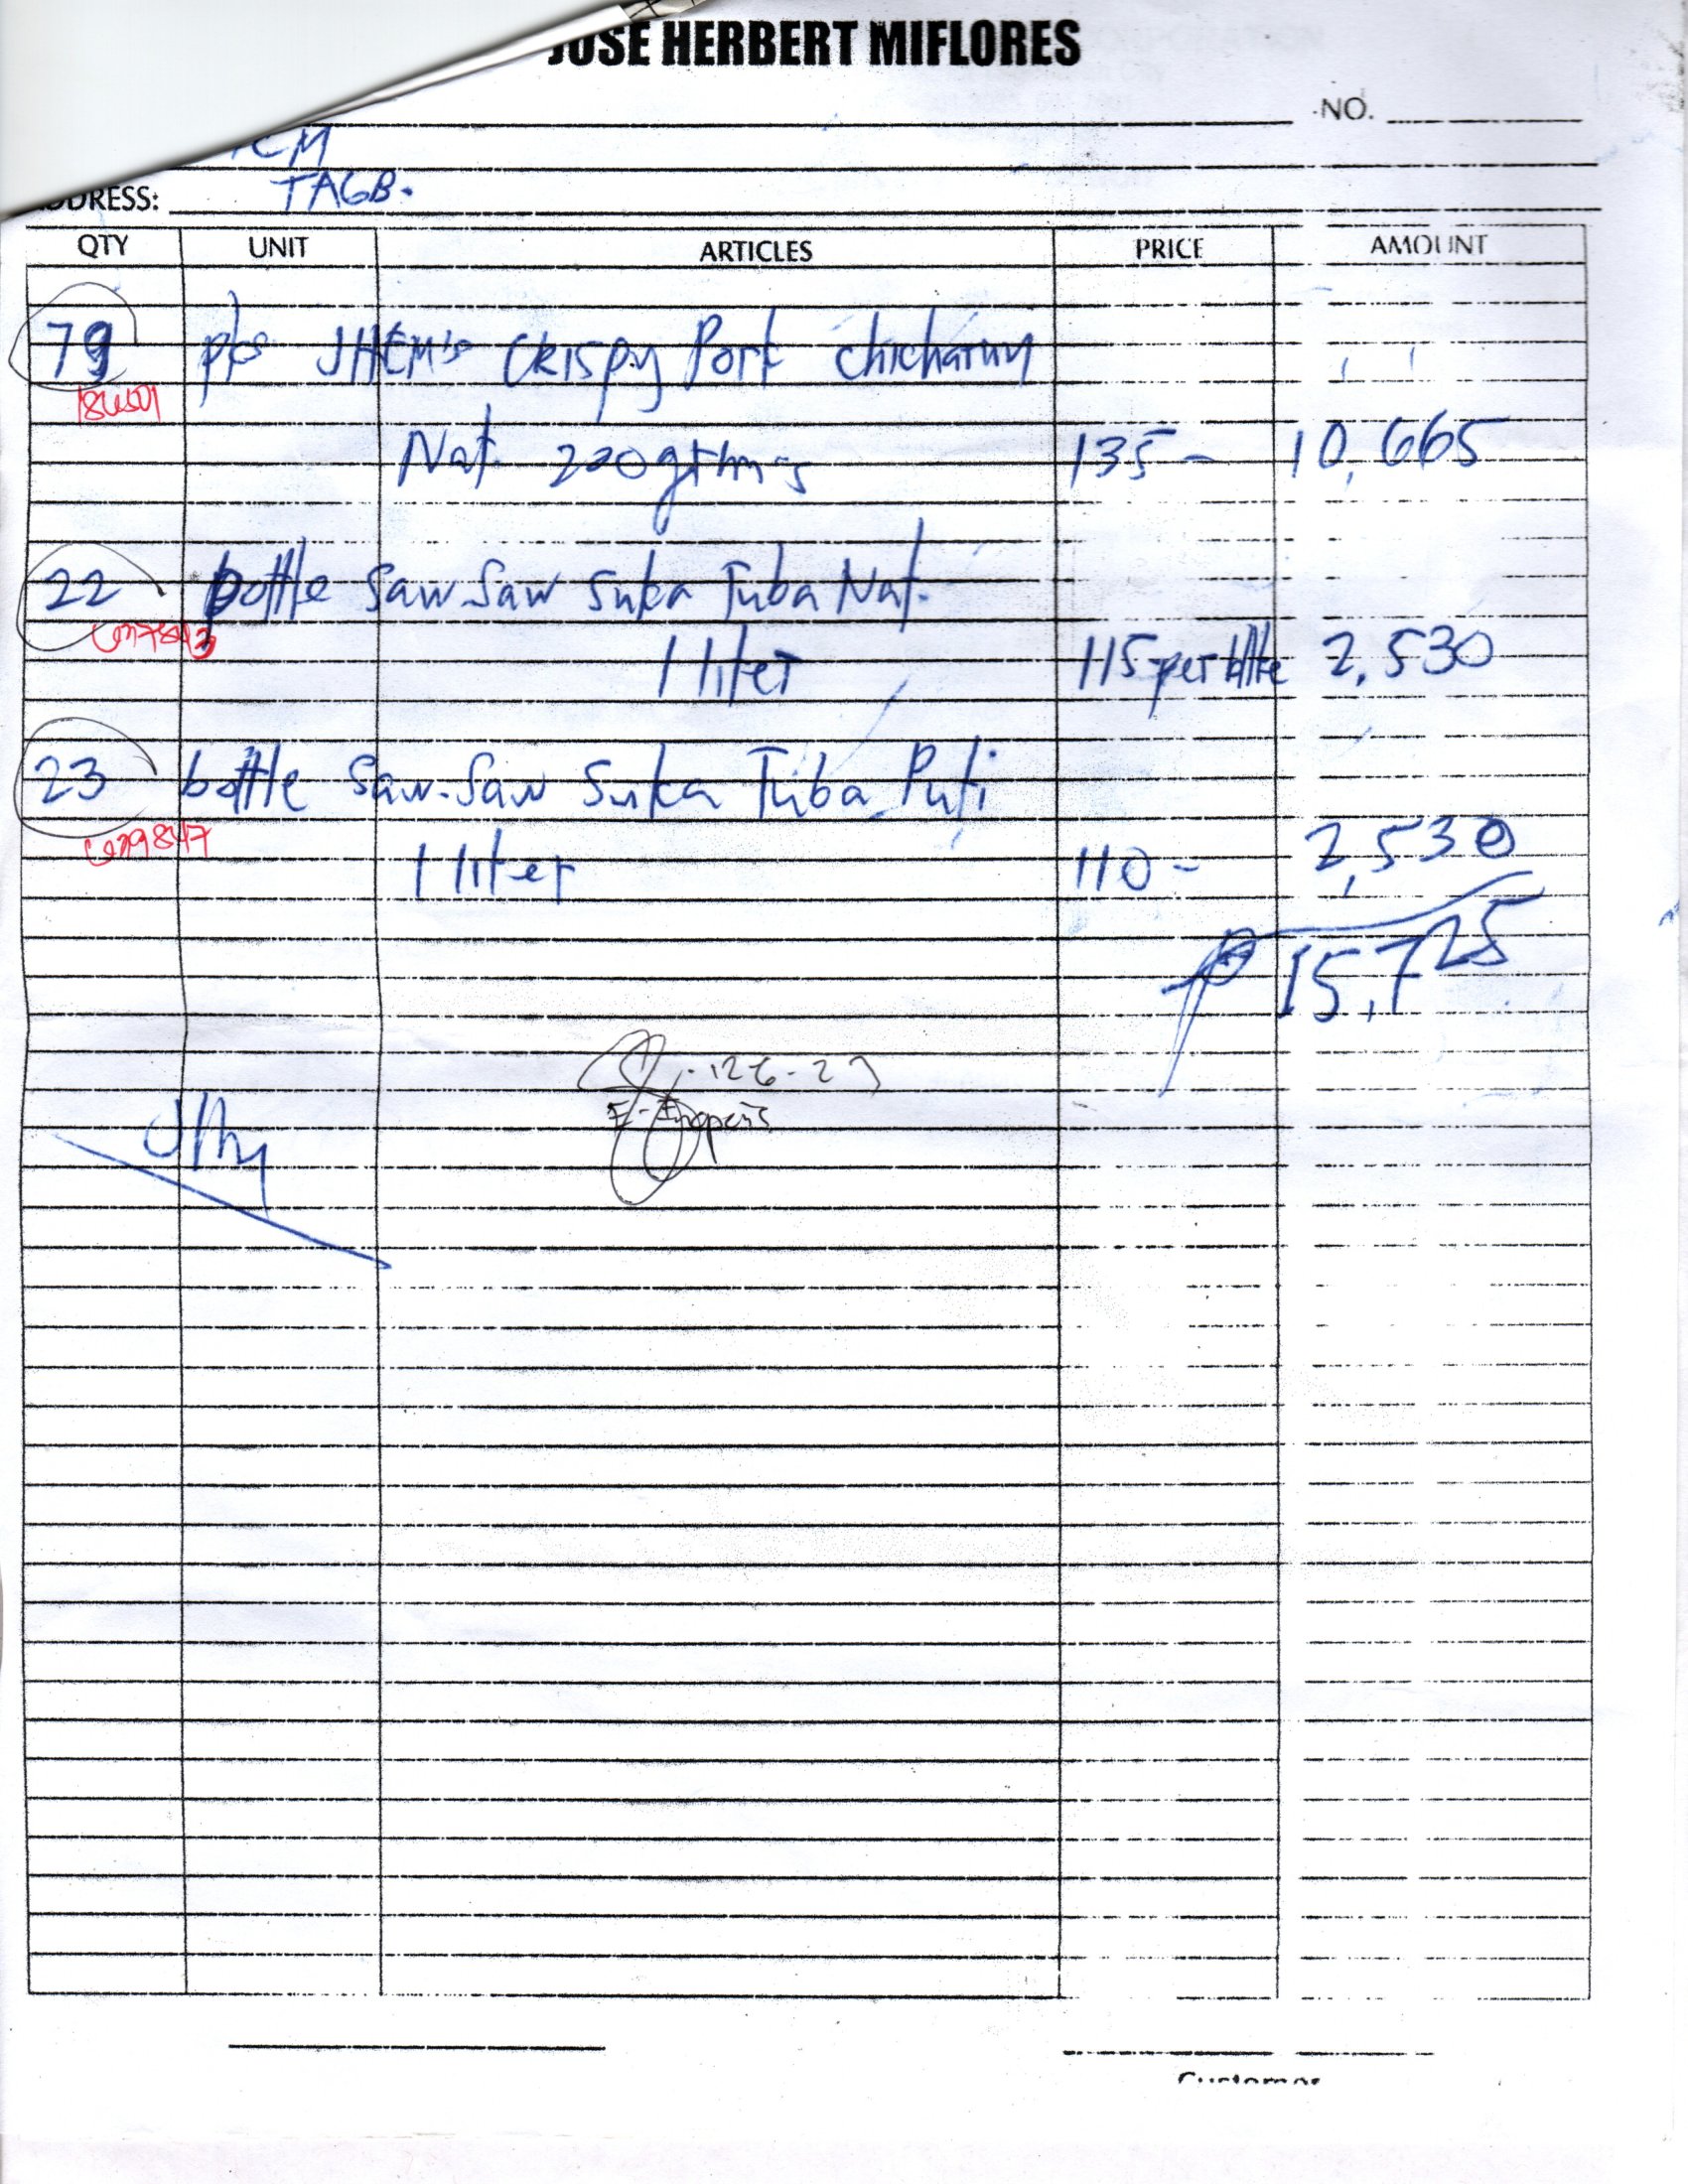 JOSE HERBERT MIFLORES
NO.
ICM
ADDRESS: TAGB.
QTY UNIT ARTICLES PRICE AMOUNT
79 pks JHEM's CRISPy Pork chicharon
Nat. 200 grams 135- 10,665
22 bottle Saw-Saw Suka Tuba Nat.
1 liter 115 per bttle 2,530
23 bottle Saw-Saw Suka Tuba Puti
29847
1 liter 110- 2,530
₱ 15,725
Customer